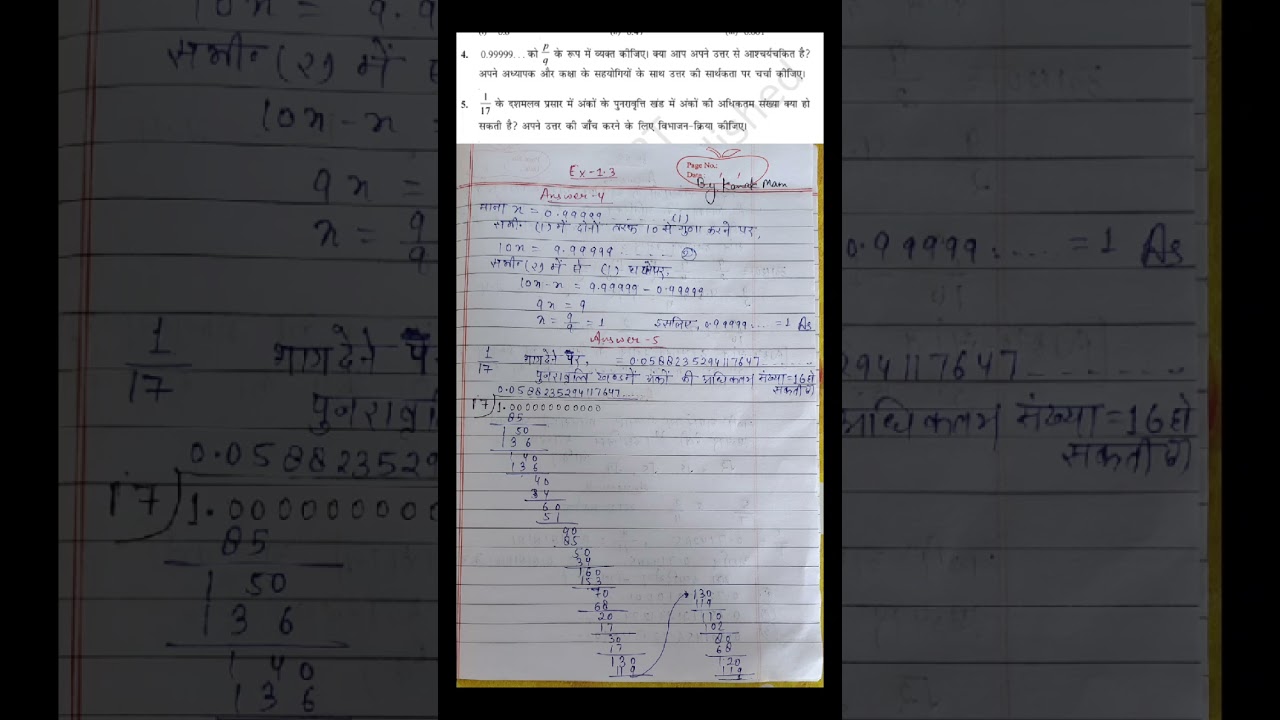 4. 0.99999... को p/q के रूप में व्यक्त कीजिए। क्या आप अपने उत्तर से आश्चर्यचकित है?
अपने अध्यापक और कक्षा के सहयोगियों के साथ उत्तर की सार्थकता पर चर्चा कीजिए।
5. 1/17 के दशमलव प्रसार में अंकों के पुनरावृत्ति खंड में अंकों की अधिकतम संख्या क्या हो
सकती है? अपने उत्तर की जाँच करने के लिए विभाजन-क्रिया कीजिए।
Ex-1.3
Page No.:
Date:
By Kanak Mam
Answer-4
माना x = 0.99999 ...... (1)
समी० (1) में दोनों तरफ 10 से गुणा करने पर,
10x = 9.99999 ...... (2)
समी० (2) में से (1) घटाने पर,
10x-x = 9.99999 - 0.99999
9x = 9
x = 9/9 = 1 इसलिए, 0.99999.... = 1 As
Answer-5
1/17 भाग देने पर, = 0.0588235294117647......
पुनरावृत्ति खण्ड में अंकों की अधिकतम संख्या=16 हो
सकती है
0.0588235294117647....
17) 1.000000000000
85
150
136
140
136
40
34
60
51
90
85
50
34
160
153
70
68
20
17
30
17
130
119
130
119
110
102
80
68
120
119
1